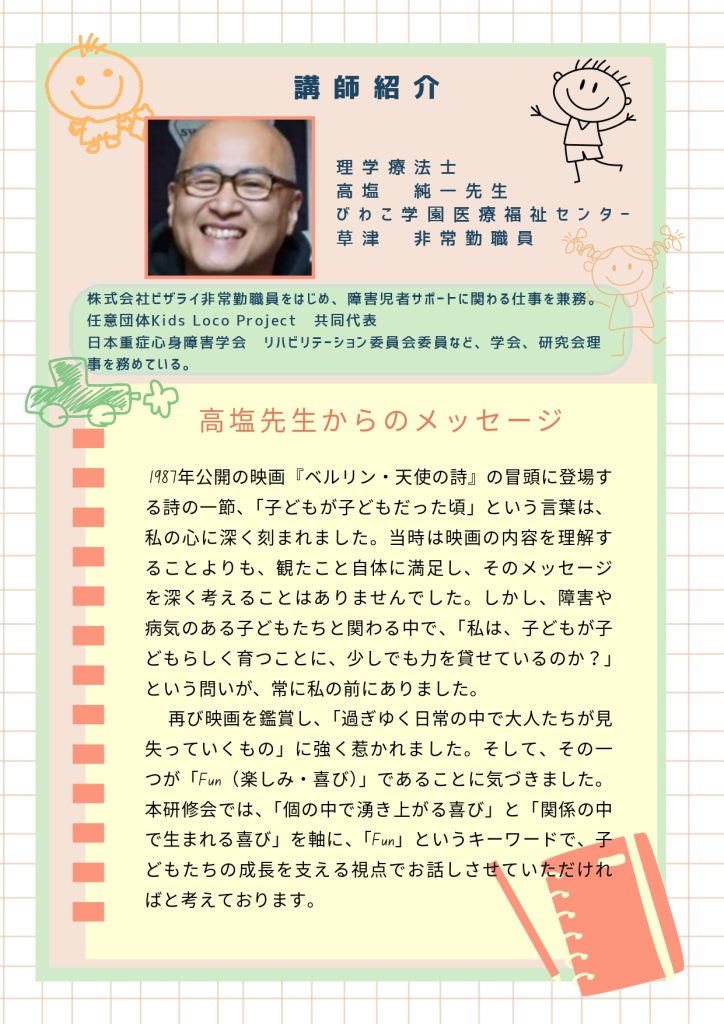 講師紹介
理学療法士
高塩　純一先生
びわこ学園医療福祉センター
草津　非常勤職員
株式会社ビザライ非常勤職員をはじめ、障害児者サポートに関わる仕事を兼務。
任意団体Kids Loco Project　共同代表
日本重症心身障害学会　リハビリテーション委員会委員など、学会、研究会理
事を務めている。
高塩先生からのメッセージ
1987年公開の映画『ベルリン・天使の詩』の冒頭に登場す
る詩の一節、「子どもが子どもだった頃」という言葉は、
私の心に深く刻まれました。当時は映画の内容を理解す
ることよりも、観たこと自体に満足し、そのメッセージ
を深く考えることはありませんでした。しかし、障害や
病気のある子どもたちと関わる中で、「私は、子どもが子
どもらしく育つことに、少しでも力を貸せているのか？」
という問いが、常に私の前にありました。
再び映画を鑑賞し、「過ぎゆく日常の中で大人たちが見
失っていくもの」に強く惹かれました。そして、その一
つが「Fun（楽しみ・喜び）」であることに気づきました。
本研修会では、「個の中で湧き上がる喜び」と「関係の中
で生まれる喜び」を軸に、「Fun」というキーワードで、子
どもたちの成長を支える視点でお話しさせていただけれ
ばと考えております。